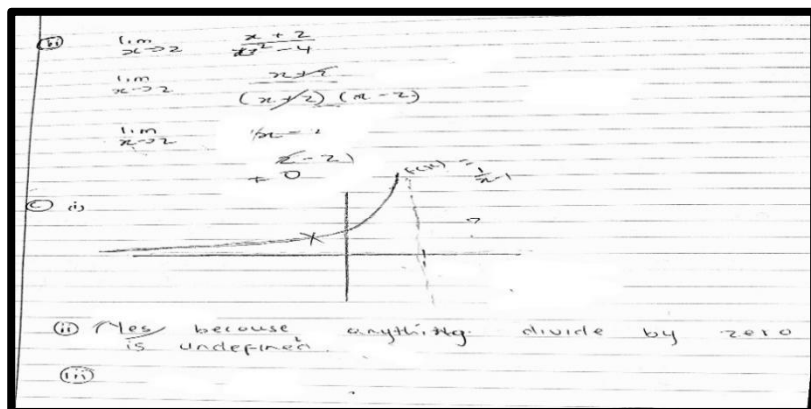 (b) lim x→2 x + 2 / x² - 4
lim x→2 x+2 / (x+2) (x - 2)
lim x→2
x - 2
0
f(x) =
(c) i)
(ii) Yes because anything divide by zero
is undefined.
(iii)